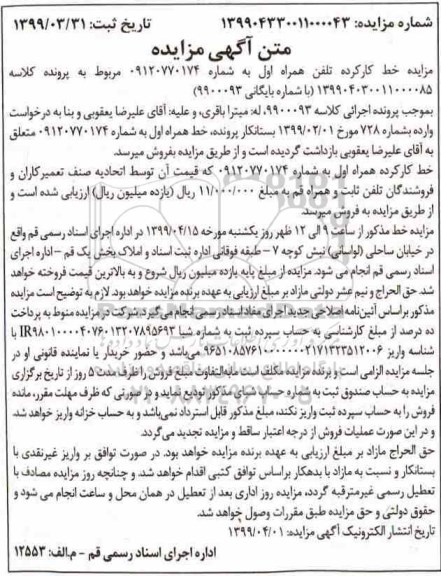 شماره مزایده: ۱۳۹۹۰۴۳۳۰۰۱۱۰۰۰۰۴۳ تاریخ ثبت: ۱۳۹۹/۰۳/۳۱
متن آگهی مزایده
مزایده خط کارکرده تلفن همراه اول به شماره ۰۹۱۲۰۷۷۰۱۷۴ مربوط به پرونده کلاسه
۱۳۹۹۰۴۰۳۰۰۱۱۰۰۰۰۸۵ (با شماره بایگانی ۹۹۰۰۰۹۳)
بموجب پرونده اجرائی کلاسه ۹۹۰۰۰۹۳، له: میترا باقری، و علیه: آقای علیرضا یعقوبی و بنا به درخواست
وارده بشماره ۷۲۸ مورخ ۱۳۹۹/۰۲/۰۱ بستانکار پرونده، خط همراه اول به شماره ۰۹۱۲۰۷۷۰۱۷۴ متعلق
به آقای علیرضا یعقوبی بازداشت گردیده است و از طریق مزایده بفروش میرسد.
خط کارکرده همراه اول به شماره ۰۹۱۲۰۷۷۰۱۷۴ که قیمت آن توسط اتحادیه صنف تعمیرکاران و
فروشندگان تلفن ثابت و همراه قم به مبلغ ۱۱/۰۰۰/۰۰۰ ریال (یازده میلیون ریال) ارزیابی شده است و
از طریق مزایده به فروش میرسد.
مزایده خط مذکور از ساعت ۹ الی ۱۲ ظهر روز یکشنبه مورخه ۱۳۹۹/۰۴/۱۵ در اداره اجرای اسناد رسمی قم واقع
در خیابان ساحلی (لواسانی) نبش کوچه ۷ - طبقه فوقانی اداره ثبت اسناد و املاک بخش یک قم - اداره اجرای
اسناد رسمی قم انجام می شود. مزایده از مبلغ پایه یازده میلیون ریال شروع و به بالاترین قیمت فروخته خواهد
شد. حق الحراج و نیم عشر دولتی مازاد بر مبلغ ارزیابی به عهده برنده مزایده خواهد بود. لازم به توضیح است مزایده
مذکور براساس آئین‌نامه اصلاحی جدید اجرای مفاد اسناد رسمی انجام می‌گیرد. شرکت در مزایده منوط به پرداخت
ده درصد از مبلغ کارشناسی به حساب سپرده ثبت به شماره شبا IR۹۸۰۱۰۰۰۰۴۰۷۶۰۱۳۲۰۷۸۹۵۶۹۳ با
شناسه واریز ۹۶۵۱۰۸۵۷۶۱۰۰۰۰۰۰۰۲۱۷۱۳۲۳۵۱۲۰۰۶ می‌باشد و حضور خریدار یا نماینده قانونی او در
جلسه مزایده الزامی است و برنده مزایده مکلف است مابه‌التفاوت مبلغ فروش را ظرف مدت ۵ روز از تاریخ برگزاری
مزایده به حساب صندوق ثبت به شماره حساب شبای مذکور تودیع نماید و در صورتی که ظرف مهلت مقرر، مانده
فروش را به حساب سپرده ثبت واریز نکند، مبلغ مذکور قابل استرداد نمی‌باشد و به حساب خزانه واریز خواهد شد.
و در این صورت عملیات فروش از درجه اعتبار ساقط و مزایده تجدید می‌گردد.
حق الحراج مازاد بر مبلغ ارزیابی به عهده برنده مزایده خواهد بود. در صورت توافق بر واریز غیرنقدی با
بستانکار و نسبت به مازاد با بدهکار براساس توافق کتبی اقدام خواهد شد. و چنانچه روز مزایده مصادف با
تعطیل رسمی غیرمترقبه گردد، مزایده روز اداری بعد از تعطیل در همان محل و ساعت انجام می شود و
حقوق دولتی و حق مزایده طبق مقررات وصول خواهد شد.
تاریخ انتشار الکترونیک آگهی مزایده: ۱۳۹۹/۰۴/۰۱
اداره اجرای اسناد رسمی قم - م.الف: ۱۲۵۵۳